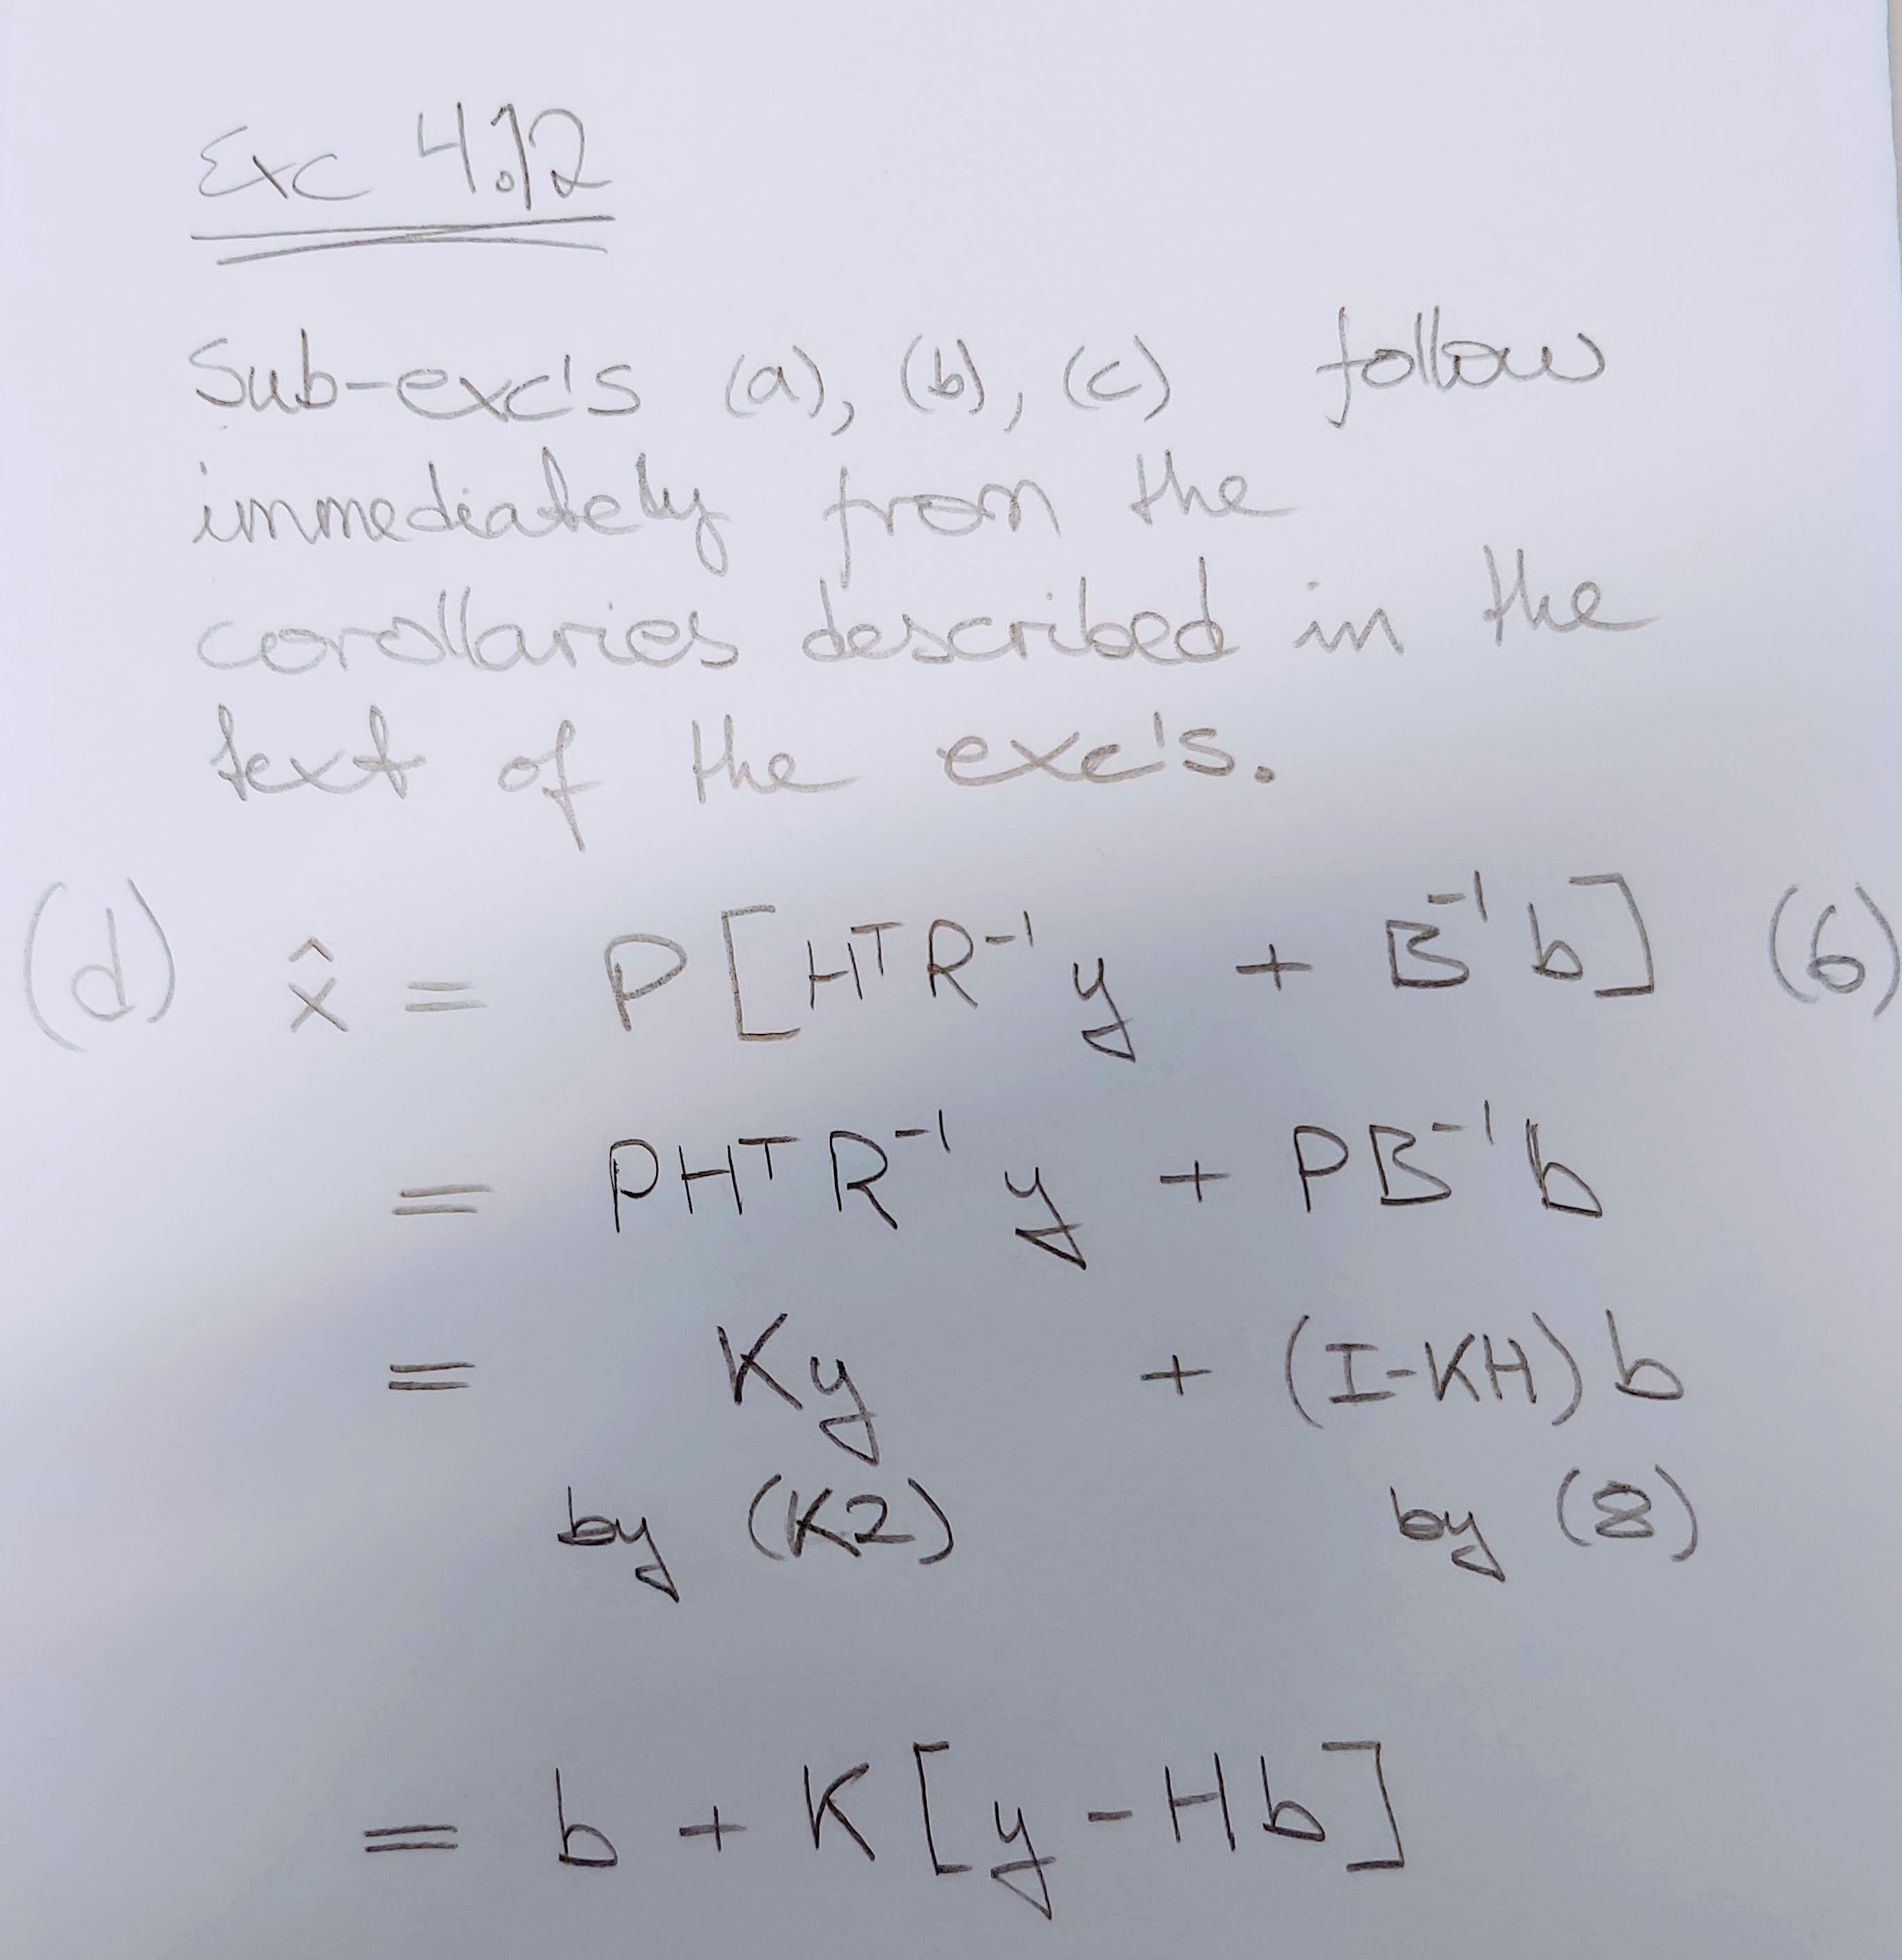 Exc 4.12
Sub-exc's (a), (b), (c) follow
immediately from the
corollaries described in the
text of the exc's.
(d) x̂ = P[HᵀR⁻¹y + B⁻¹b] (6)
= PHᵀR⁻¹y + PB⁻¹b
= Ky + (I-KH)b
by (K2) by (8)
= b + K[y-Hb]